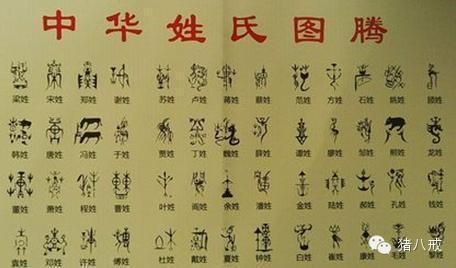 中华姓氏图腾
梁姓 宋姓 郑姓 谢姓 苏姓 卢姓 蒋姓 蔡姓 范姓 方姓 石姓 姚姓 顾姓
韩姓 唐姓 冯姓 于姓 贾姓 丁姓 魏姓 薛姓 谭姓 廖姓 邹姓 熊姓 龙姓
董姓 萧姓 程姓 曹姓 叶姓 阎姓 余姓 潘姓 金姓 陆姓 郝姓 孔姓 钱姓
袁姓 邓姓 许姓 傅姓 杜姓 戴姓 夏姓 钟姓 白姓 崔姓 康姓 毛姓 黎姓
猪八戒